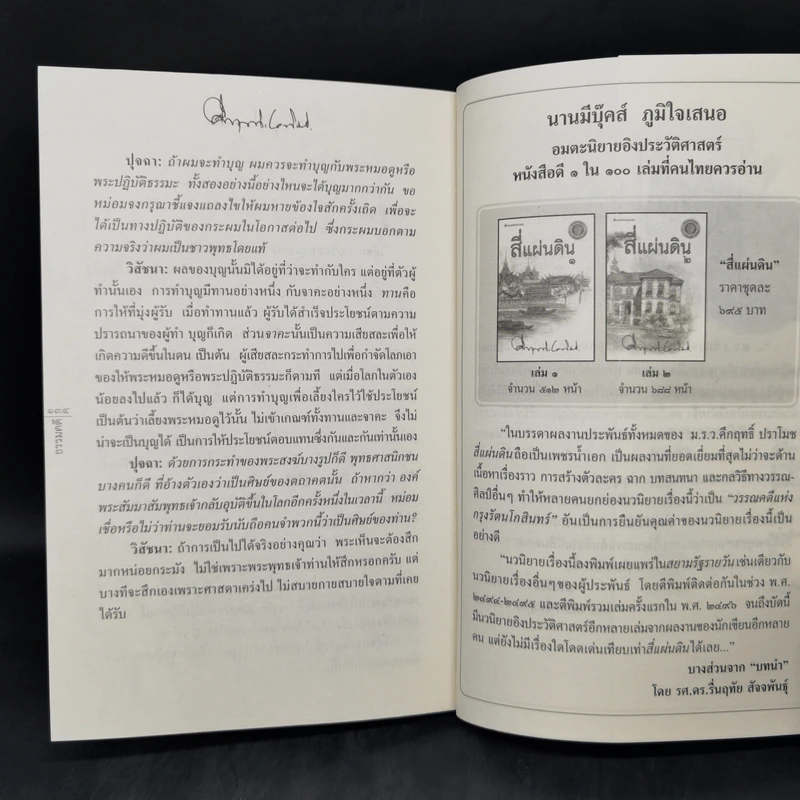 ปุจฉา: ถ้าผมจะทำบุญ ผมควรจะทำบุญกับพระหมอดูหรือ
พระปฏิบัติธรรมะ ทั้งสองอย่างนี้อย่างไหนจะได้บุญมากกว่ากัน ขอ
หม่อมจงกรุณาชี้แจงแถลงไขให้ผมหายข้องใจสักครั้งเถิด เพื่อจะ
ได้เป็นทางปฏิบัติของกระผมในโอกาสต่อไป ซึ่งกระผมบอกตาม
ความจริงว่าผมเป็นชาวพุทธโดยแท้
วิสัชนา: ผลของบุญนั้นมิได้อยู่ที่ว่าจะทำกับใคร แต่อยู่ที่ตัวผู้
ทำนั้นเอง การทำบุญมีทานอย่างหนึ่ง กับจาคะอย่างหนึ่ง ทานคือ
การให้ที่มุ่งผู้รับ เมื่อทำทานแล้ว ผู้รับได้สำเร็จประโยชน์ตามความ
ปรารถนาของผู้ทำ บุญก็เกิด ส่วนจาคะนั้นเป็นความเสียสละเพื่อให้
เกิดความดีขึ้นในตน เป็นต้น ผู้เสียสละกระทำการไปเพื่อกำจัดโลภเอา
ของให้พระหมอดูหรือพระปฏิบัติธรรมะก็ตามที แต่เมื่อโลภในตัวเอง
น้อยลงไปแล้ว ก็ได้บุญ แต่การทำบุญเพื่อเลี้ยงใครไว้ใช้ประโยชน์
เป็นต้นว่าเลี้ยงพระหมอดูไว้นั้น ไม่เข้าเกณฑ์ทั้งทานและจาคะ จึงไม่
น่าจะเป็นบุญได้ เป็นการให้ประโยชน์ตอบแทนซึ่งกันและกันเท่านั้นเอง
ปุจฉา: ด้วยการกระทำของพระสงฆ์บางรูปก็ดี พุทธศาสนิกชน
บางคนก็ดี ที่อ้างตัวเองว่าเป็นศิษย์ของตถาคตนั้น ถ้าหากว่า องค์
พระสัมมาสัมพุทธเจ้ากลับอุบัติขึ้นในโลกอีกครั้งหนึ่งในเวลานี้ หม่อม
เชื่อหรือไม่ว่าท่านจะยอมรับนับถือคนจำพวกนี้ว่าเป็นศิษย์ของท่าน?
วิสัชนา: ถ้าการเป็นไปได้จริงอย่างคุณว่า พระเห็นจะต้องสึก
มากหน่อยกระมัง ไม่ใช่เพราะพระพุทธเจ้าท่านให้สึกหรอกครับ แต่
บางทีจะสึกเองเพราะศาสดาเคร่งไป ไม่สบายกายสบายใจตามที่เคย
ได้รับ
๑๓๔
ธรรมคดี
นานมีบุ๊คส์ ภูมิใจเสนอ
อมตะนิยายอิงประวัติศาสตร์
หนังสือดี ๑ ใน ๑๐๐ เล่มที่คนไทยควรอ่าน
สี่แผ่นดิน
๑
สี่แผ่นดิน
๒
"สี่แผ่นดิน"
ราคาชุดละ
๖๙๕ บาท
เล่ม ๑
จำนวน ๕๑๒ หน้า
เล่ม ๒
จำนวน ๖๘๘ หน้า
"ในบรรดาผลงานประพันธ์ทั้งหมดของ ม.ร.ว.คึกฤทธิ์ ปราโมช
สี่แผ่นดินถือเป็นเพชรน้ำเอก เป็นผลงานที่ยอดเยี่ยมที่สุดไม่ว่าจะด้าน
เนื้อหาเรื่องราว การสร้างตัวละคร ฉาก บทสนทนา และกลวิธีทางวรรณ-
ศิลป์อื่นๆ ทำให้หลายคนยกย่องนวนิยายเรื่องนี้ว่าเป็น "วรรณคดีแห่ง
กรุงรัตนโกสินทร์" อันเป็นการยืนยันคุณค่าของนวนิยายเรื่องนี้เป็น
อย่างดี
"นวนิยายเรื่องนี้ลงพิมพ์เผยแพร่ในสยามรัฐรายวันเช่นเดียวกับ
นวนิยายเรื่องอื่นๆ ของผู้ประพันธ์ โดยตีพิมพ์ติดต่อกันในช่วง พ.ศ.
๒๔๙๔-๒๔๙๕ และตีพิมพ์รวมเล่มครั้งแรกใน พ.ศ. ๒๔๙๖ จนถึงบัดนี้
มีนวนิยายอิงประวัติศาสตร์อีกหลายเล่มจากผลงานของนักเขียนอีกหลาย
คน แต่ยังไม่มีเรื่องใดโดดเด่นเทียบเท่าสี่แผ่นดินได้เลย..."
บางส่วนจาก "บทนำ"
โดย รศ.ดร.รื่นฤทัย สัจจพันธุ์